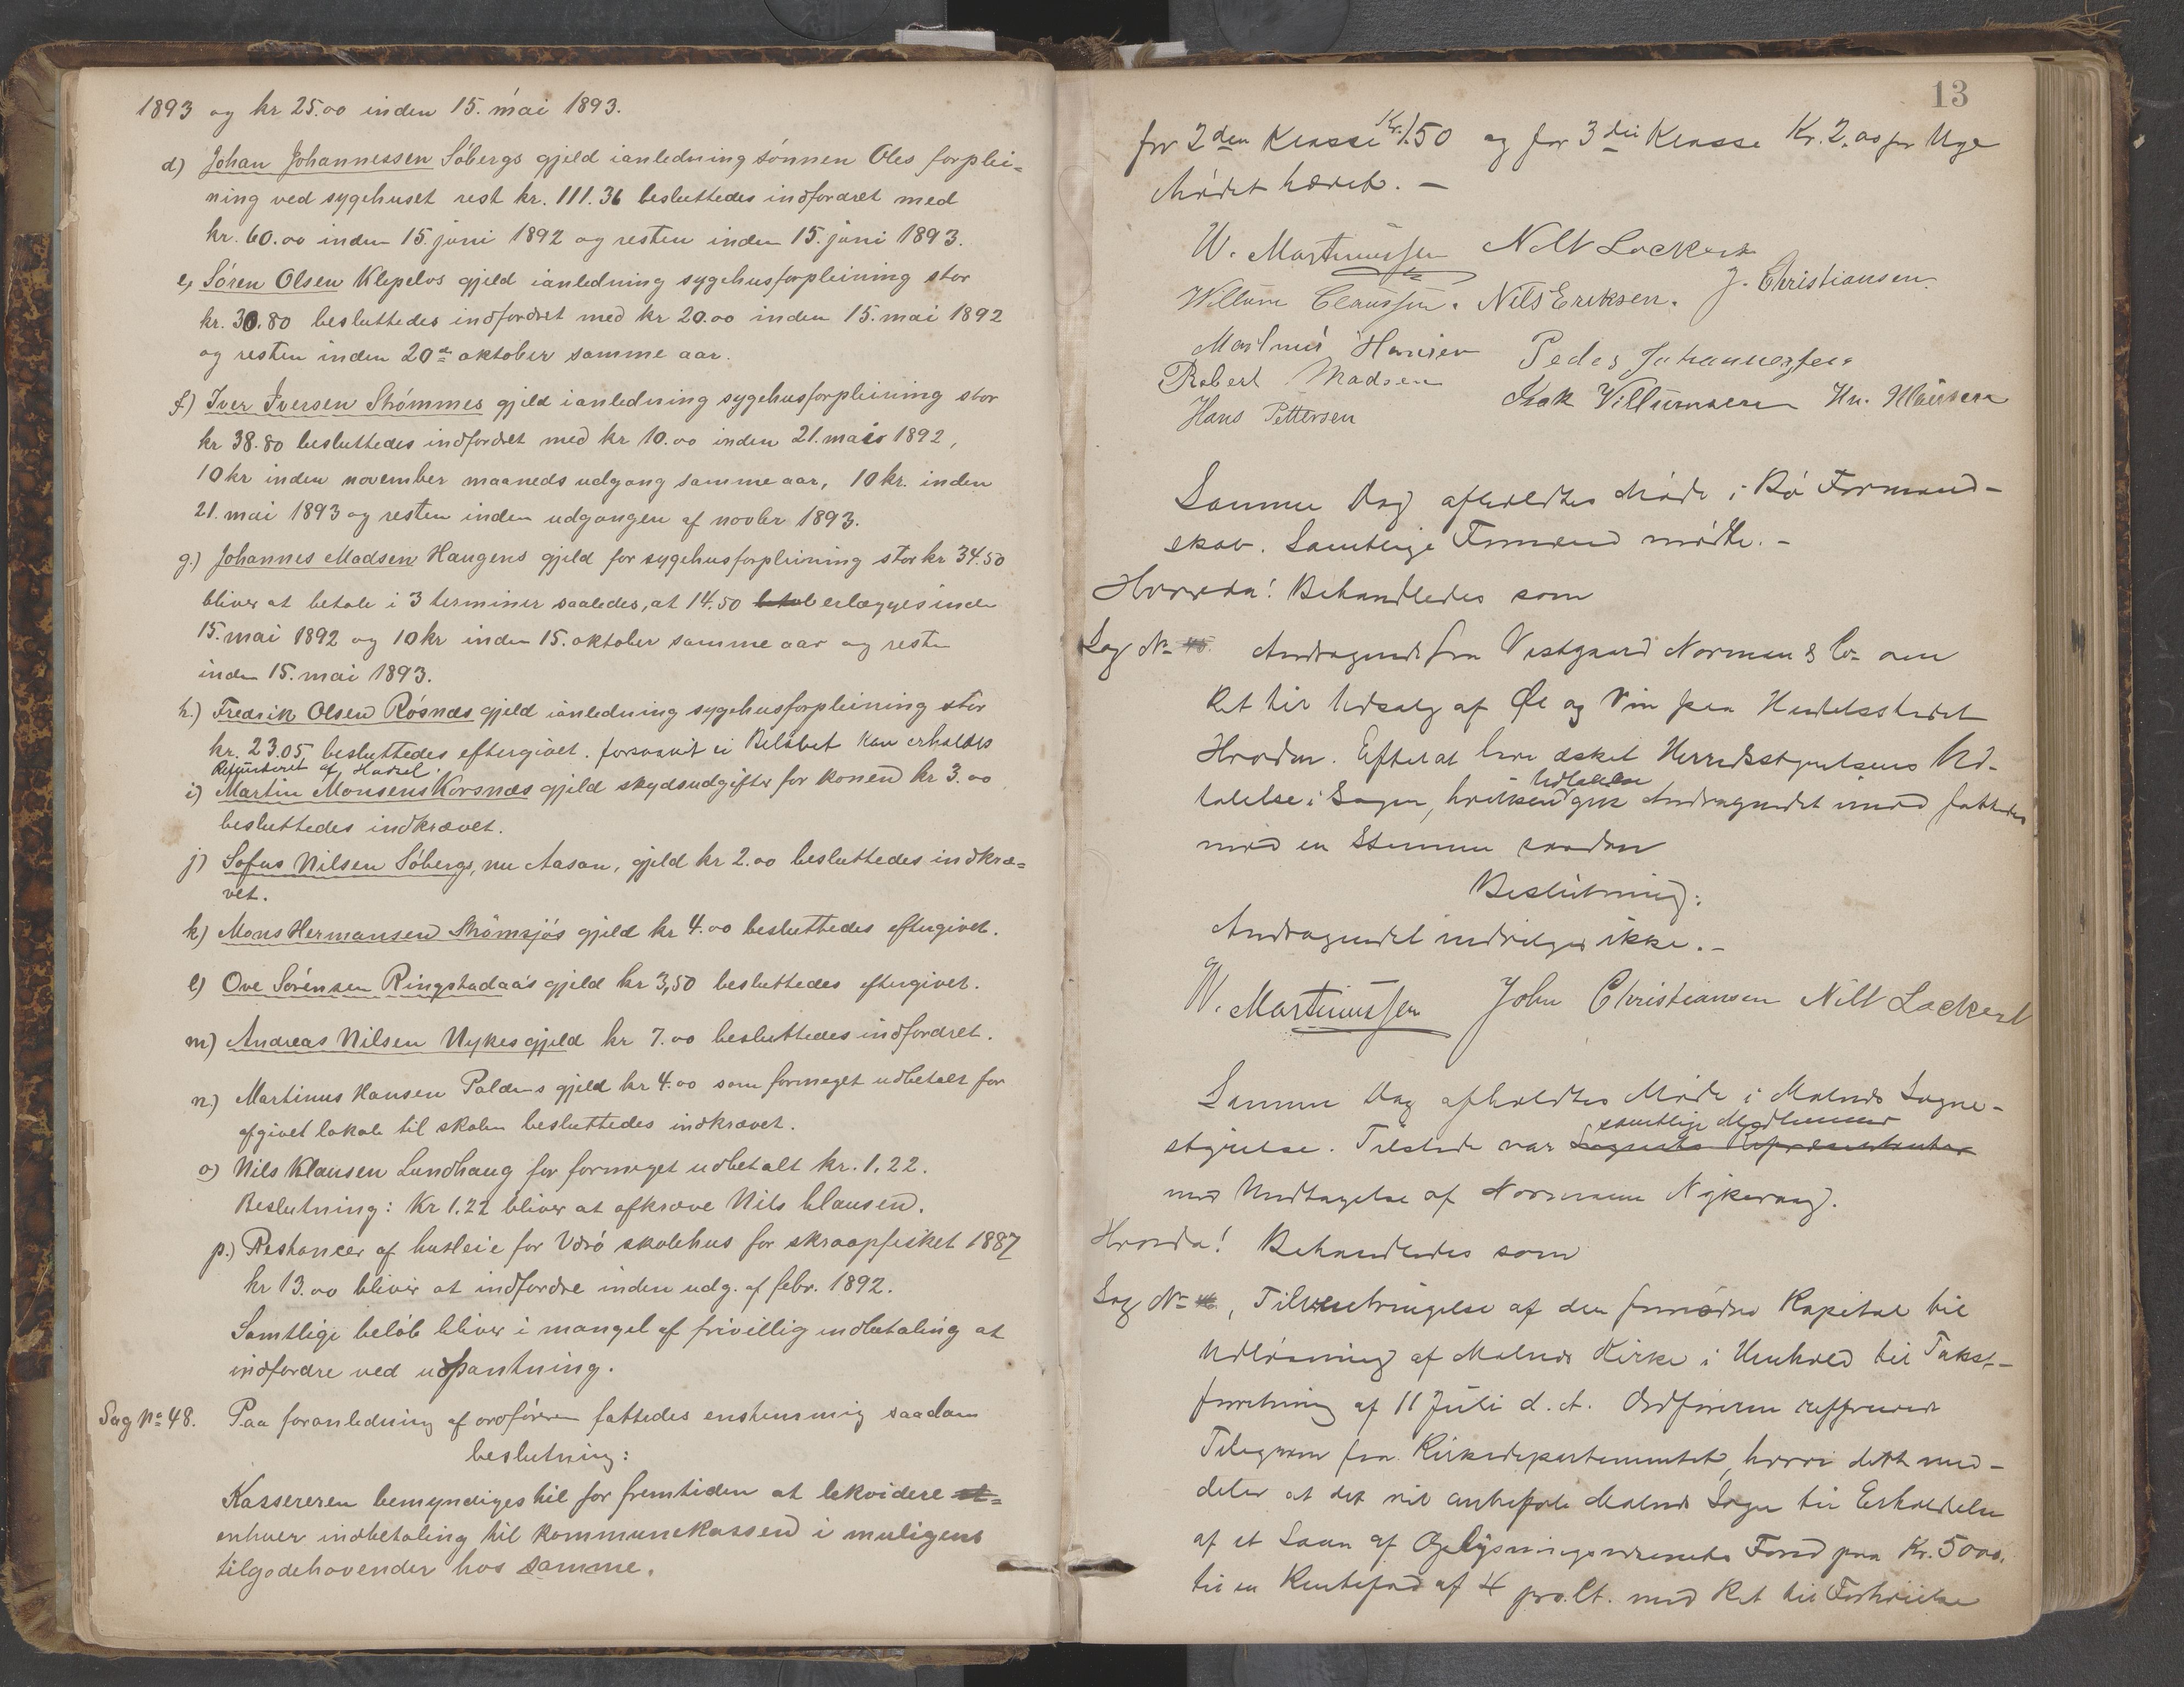 1893 og kr 25.00 inden 15. mai 1893.
d) Johan Johannessen Söbergs gjeld ianledning sönnen Oles forplei-
ning ved sygehuset rest kr. 111.36 besluttedes indfordret med
kr. 60.00 inden 15. juni 1892 og resten inden 15. juni 1893.
e) Sören Olsen Klepelvs gjeld ianledning sygehusforpleining stor
kr. 30.80 besluttedes indfordret med kr 20.00 inden 15. mai 1892
og resten inden 20de oktober samme aar.
f) Iver Iversen Strömmes gjeld ianledning sygehusforpleining stor
kr 38.80 besluttedes indfordret med kr 10.00 inden 21. mai 1892,
10 kr inden november maaneds udgang samme aar, 10 kr. inden
21. mai 1893 og resten inden udgangen af novbr 1893.
g.) Johannes Madsen Haugens gjeld for sygehusforpleining stor kr 34.50
bliver at betale i 3 terminer saaledes, at 14.50 erlægges inden
15. mai 1892 og 10 kr inden 15. oktober samme aar og resten
inden 15. mai 1893.
h.) Fredrik Olsen Rösnæs gjeld ianledning sygehusforpleining stor
kr. 23.05 besluttedes eftergivet. forsaavit ei Belöbet kan erholdes
Refunderet af Hadsel.
i) Martin Monsens Korsnæs gjeld skydsudgifter for konen kr 3.00
besluttedes indkrævet.
j) Sofus Nilsen Söbergs, nu Aasan, gjeld kr 2.00 besluttedes indkræ-
vet.
k) Mons Hermansen Strömsjös gjeld kr 4.00 besluttedes eftergivet.
l) Ove Sörensen Ringstadaas gjeld kr 3,50 besluttedes eftergivet.
m) Andreas Nilsen Nykes gjeld kr 7.00 besluttedes indfordret.
n.) Martinus Hansen Paldens gjeld kr 4.00 som formeget udbetalt for
afgivet lokale til skolen besluttedes indkrævet.
o) Nils Klausen Lundhaug for formeget udbetalt kr. 1.22.
Beslutning: Kr 1.22 bliver at afkræve Nils Clausen.
p.) Restancer af husleie for Værö skolehus for skraapfisket 1887
kr 13.00 bliver at indfordre inden udg. af febr. 1892.
Samtlige belöb bliver i mangel af frivillig indbetaling at
indfordre ved udpantning.
Sag No 48. Paa foranledning af ordföreren fattedes enstemmig saadan
beslutning:
Kassereren bemyndiges til for fremtiden at likvidere
enhver indbetaling til kommunekassen i muligens
tilgodehavender hos samme.
13
for 2den Klasse Kr. 1.50 og for 3die Klasse Kr. 2.00 pr Uge
Mödet hævet. -
W. Martinussen Nils Lockert
J. Christiansen.
Willum Claussen. Nils Eriksen.
Martinus Hansen Peder Johannessen
Robert Madsen
Isak Villumsen Kn. Maursen
Hans Pettersen
Samme Dag afholdtes Möde i Bö Formand-
skab. Samtlige Formænd mödte. -
Hvorda! Behandledes som
Sag No Andragende fra Vestgaard Normen & Co om
Ret til Udsalg af Øl og Vin paa Handelsstedet
Hvorden. Efter at have æsket Herredsstyrelsens Ud-
talelse i Sagen, hvilken Udtalelse gik Andragendet imod fattedes
mod en Stemme saadan
Beslutning:
Andragendet indvilges ikke. -
W. Martinussen John Christiansen Nils Lockert
Samme Dag afholdtes Möde i Malnes Sogne-
styrelse. Tilstede var samtlige Medlemmer
med Undtagelse af Normann Nykevaag.
Hvorda! Behandledes som
Sag No, Tilveiebringelse af den fornödne Kapital til
Udlösning af Malnes Kirke i Henhold til Takst-
forretning af 11 Juli d. A. Ordföreren refererede
Telegram fra Kirkedepartementet, hvori dette med-
deler at det vil anbefale Malnes Sogn til Erholdelse
af et Laan af Oplysningsvæsenets Fond paa Kr. 5000.
til en Rentefod af 4 pro.Ct. med Ret til Forhöielse